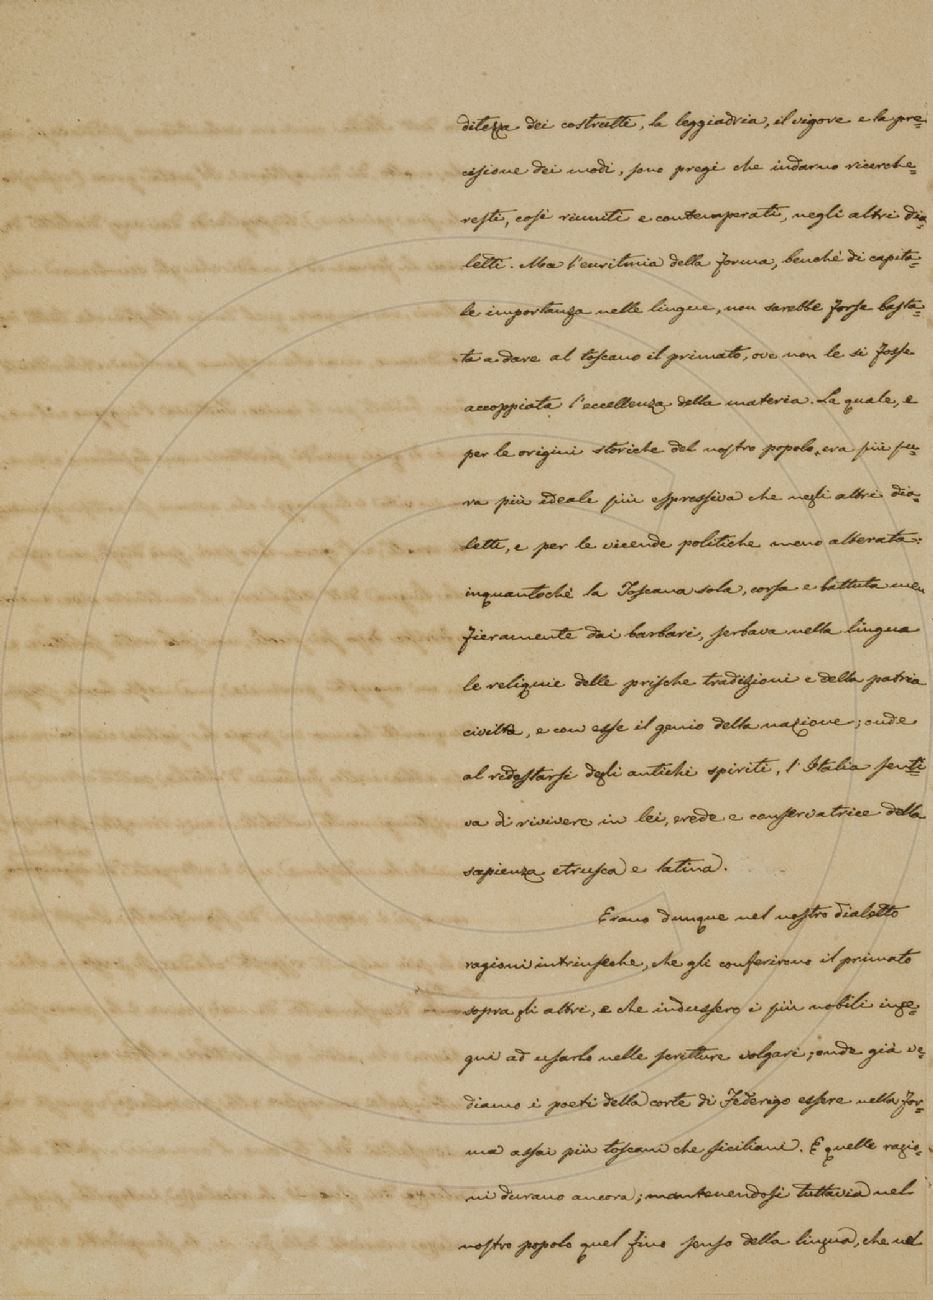 ditezza dei costrutti, la leggiadria, il vigore e la pre=
cisione dei modi, sono pregi che indarno ricerche=
resti, così riuniti e contemperati, negli altri dia=
letti. Ma l'euritmia della forma, benchè di capita=
le importanza nelle lingue, non sarebbe forse basta=
ta a dare al toscano il primato, ove non le si fosse
accoppiata l'eccellenza della materia. La quale, e
per le origini storiche del nostro popolo, era più pu=
ra più ideale più espressiva che negli altri dia=
letti, e per le vicende politiche meno alterata:
inquantochè la Toscana sola, corsa e battuta men
fieramente dai barbari, serbava nella lingua
le reliquie delle prische tradizioni e della patria
civiltà, e con esse il genio della nazione; onde
al ridestarsi degli antichi spiriti, l'Italia senti=
va di rivivere in lei, erede e conservatrice della
sapienza etrusca e latina.
Erano dunque nel nostro dialetto
ragioni intrinseche, che gli conferirono il primato
sopra gli altri, e che indussero i più nobili inge=
gni ad usarlo nelle scritture volgari; onde già ve=
diamo i poeti della corte di Federigo essere nella for=
ma assai più toscani che siciliani. E quelle ragio=
ni durano ancora; mantenendosi tuttavia nel
nostro popolo quel fino senso della lingua, che nel